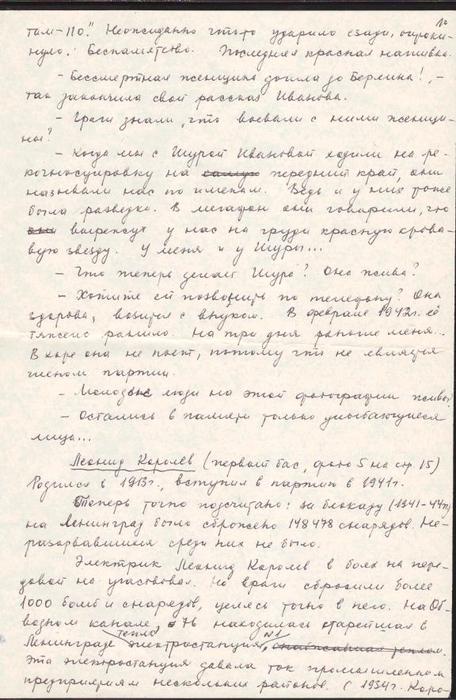 10
там-110." Неожиданно что-то ударило сзади, опроки-
нуло. Беспамятство. Последняя красная нашивка.
- Бессмертная женщина дошла до Берлина!, -
так закончила свой рассказ Иванова.
- Враги знали, что воевали с ними женщи-
ны?
- Когда мы с Шурой Ивановой ходили на ре-
когносцировку на самый передний край, они
называли нас по именам. Ведь и у них тоже
была разведка. В мегафон они говорили, что
они вырежут у нас на груди красную крова-
вую звезду. У меня и у Шуры...
- Что теперь делает Шура? Она жива?
- Хотите ей позвонить по телефону? Она
здорова, возится с внуком. В феврале 1942г. её
тяжело ранило. На три дня раньше меня..
В хоре она не поёт, потому что не является
членом партии.
- Молодые люди на этой фотографии живы?
- Остались в памяти только улыбающиеся
лица...
Леонид Королёв (первый бас, фото 5 на стр. 15)
Родился в 1913г., вступил в партию в 1941г.
Теперь точно подсчитано: за блокаду (1941-44гг)
на Ленинград было сброшено 148478 снарядов. Не-
разорвавшихся среди них не было.
Электрик Леонид Королев в боях на пере-
довой не участвовал. Но враги сбросили более
1000 бомб и снарядов, целясь точно в него. На Об-
водном канале, 76 находилась старейшая в
Ленинграде теплоэлектростанция N1,
Эта электростанция давала ток промышленным
предприятиям нескольких районов. С 1934г. Коро-